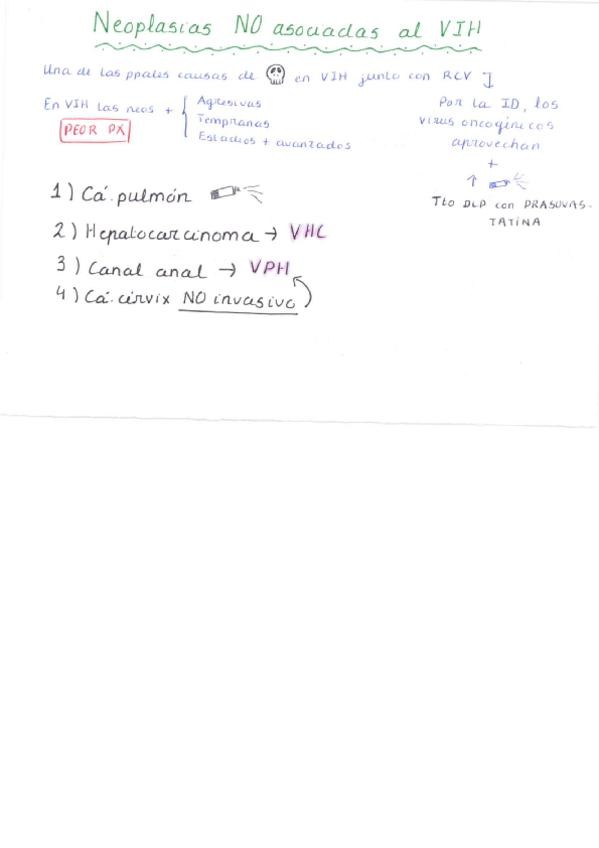 Neoplasias NO asociadas al VIH
Una de las ppales causas de en VIH junto con RCV
En VIH las neos +
Agresivas
Tempranas
Estadios + avanzados
PEOR PX
Por la ID, los
virus oncogénicos
aprovechan
+
↑
Tto DLP con PRASUVAS-
TATINA
1) Cá. pulmón
2) Hepatocarcinoma → VHC
3) Canal anal → VPH
4) Cá. cérvix NO invasivo